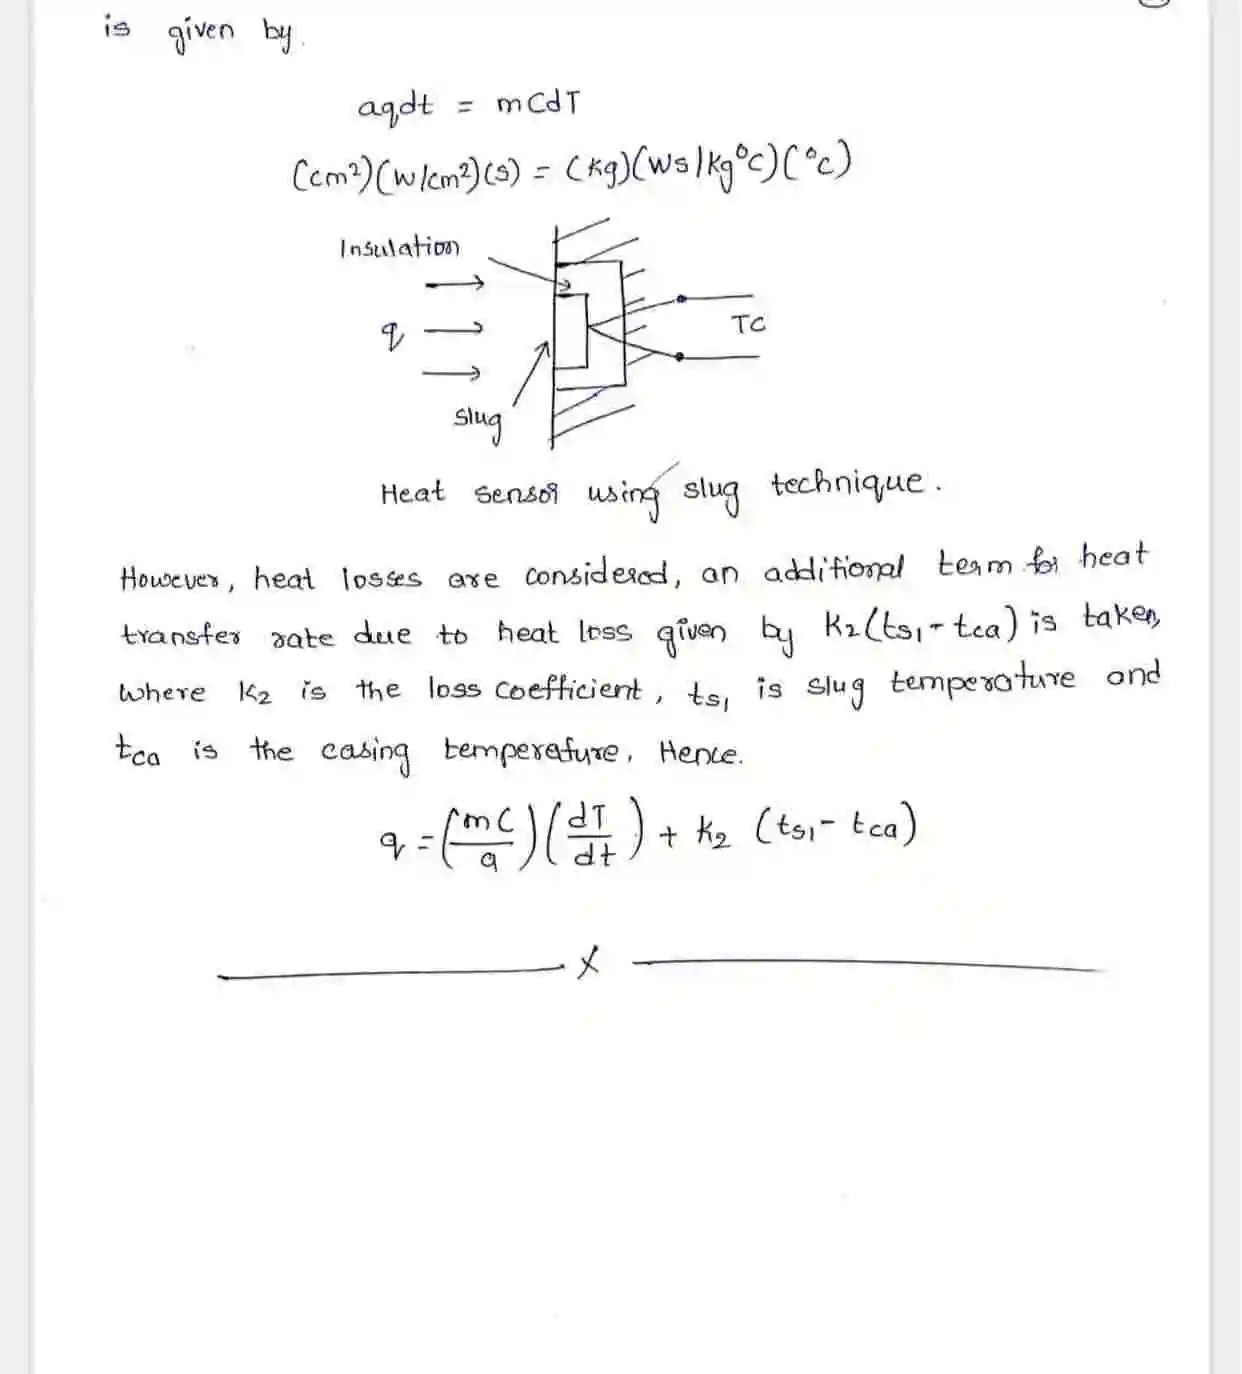 is given by.
aqdt = mCdT
(cm²)(W/cm²)(s) = (kg)(Ws/kg°C)(°C)
Insulation
q
TC
slug
Heat sensor using slug technique.
However, heat losses are considered, an additional term for heat
transfer rate due to heat loss given by K₂(ts₁ - tca) is taken,
where K₂ is the loss coefficient, ts₁ is slug temperature and
tca is the casing temperature, Hence.
q = (mC/a)(dT/dt) + K₂ (ts₁ - tca)
x